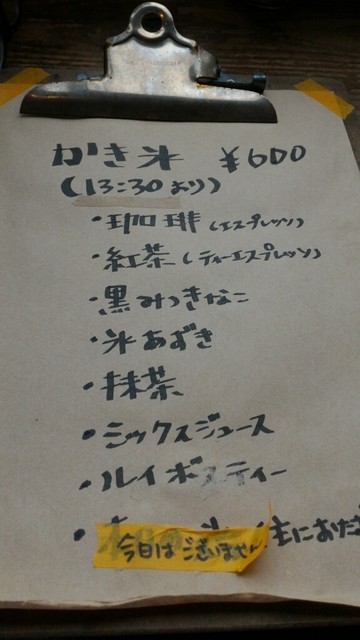 かき氷 ¥600
(13:30より)
・珈琲(エスプレッソ)
・紅茶(ティーエスプレッソ)
・黒みつきなこ
・氷あずき
・抹茶
・ミックスジュース
・ルイボスティー
今日はございません